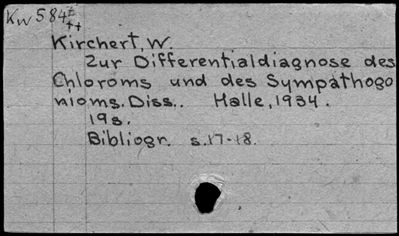 Kw 584‡
++
Kirchert, W.
Zur Differentialdiagnose des
Chloroms und des Sympathogo
nioms. Diss.. Halle, 1934.
19s.
Bibliogr. s.17-18.